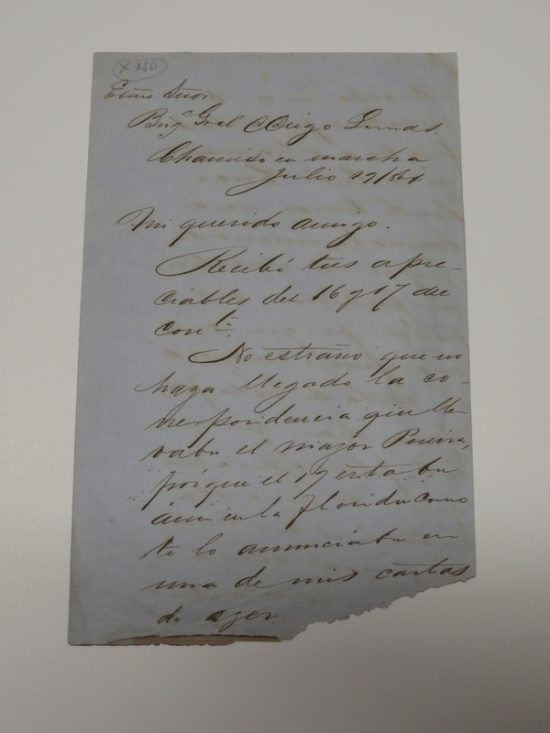 x 150
Exmo Señor
Brigr Gral Diego Lamas.
en marcha
Julio 19/
Mi querido amigo.
Recibí tus apre-
ciables del 16 y 17 del
corte.
No estraño que no
haya llegado la co-
rrespondencia que lle-
vaba el major Pereira,
porque el 17 estaba
aun en la Florida como
te lo anunciaba en
una de mis cartas
de ayer.